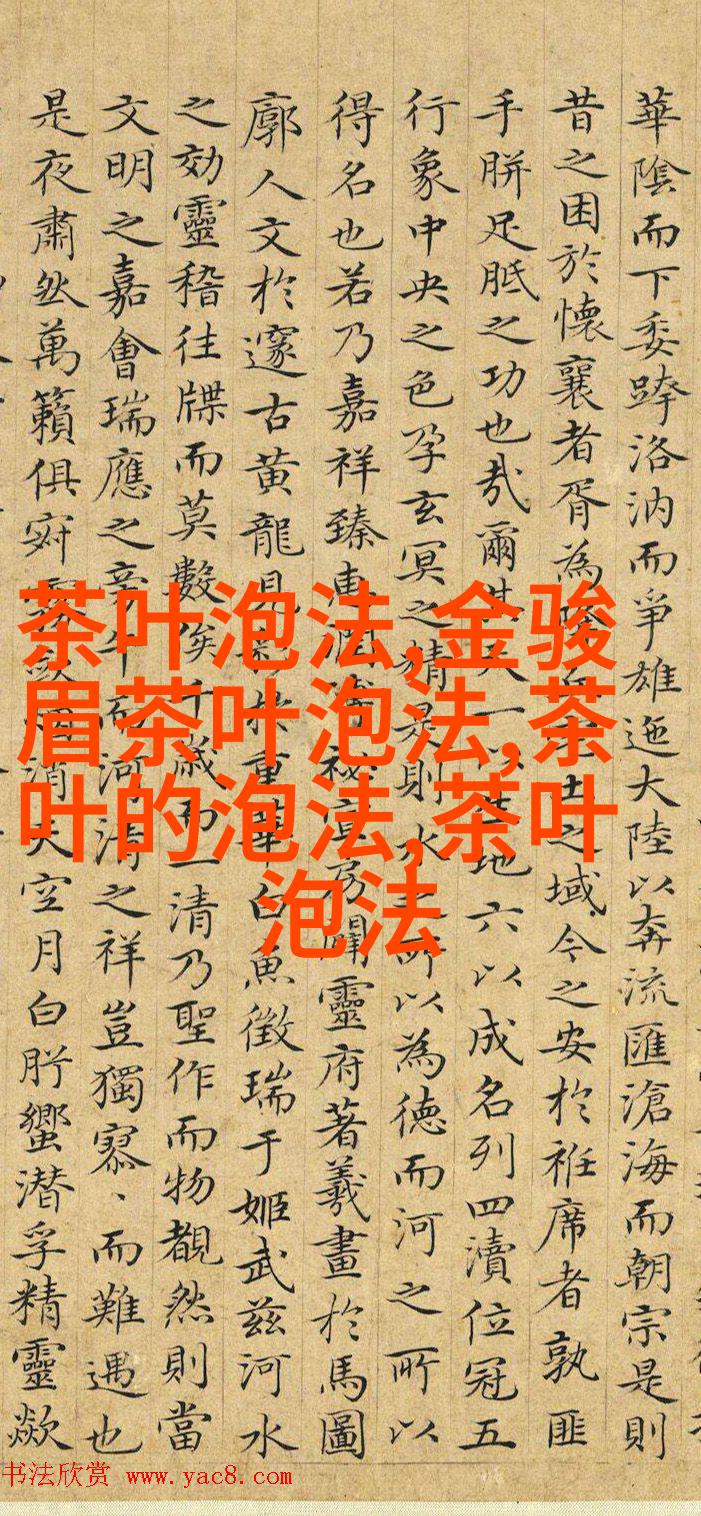 茶叶泡法,金骏
眉茶叶泡法,茶
叶的泡法,茶叶
泡法
華陰而下委跨洛汭而爭雄迤大陸以奔流匯滄海而朝宗是則
昔之困於懷襄者胥為土之域今之安於袵席者孰匪
手胼足胝之功也哉爾其天一以地六以成名列四瀆位冠五
行象中央之色孕玄冥之精是則水之所以為德而河之所以
得名也若乃嘉祥臻惠祕闢靈府著羲畫於馬圖
廓人文於邃古黃龍見重華白魚徵瑞于姬武茲河水
之効靈稽往牒而莫數俟千歲而一清乃聖作而物覩然則當
文明之嘉會瑞應之河清之祥豈獨寡、而難遇也
是夜肅然萬籟俱消天空月白肸蠁潛孚精靈歘
书法欣赏 www.yac8.com